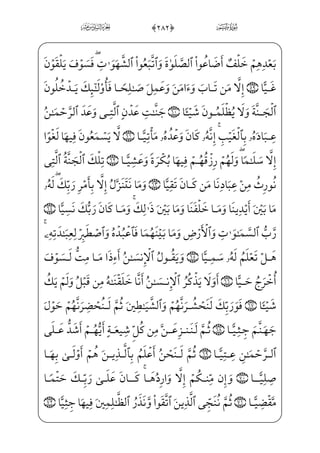 ﴿٢٨٢﴾
بَعْدِهِمْ خَلْفٌ أَضَاعُوا۟ ٱلصَّلَوٰةَ وَٱتَّبَعُوا۟ ٱلشَّهَوَٰتِ ۖ فَسَوْفَ يَلْقَوْنَ
غَيًّا ٥٩ إِلَّا مَن تَابَ وَءَامَنَ وَعَمِلَ صَـٰلِحًا فَأُو۟لَـٰٓئِكَ يَدْخُلُونَ
ٱلْجَنَّةَ وَلَا يُظْلَمُونَ شَيْـًٔا ٦٠ جَنَّـٰتِ عَدْنٍ ٱلَّتِى وَعَدَ ٱلرَّحْمَـٰنُ
عِبَادَهُۥ بِٱلْغَيْبِ ۚ إِنَّهُۥ كَانَ وَعْدُهُۥ مَأْتِيًّا ٦١ لَّا يَسْمَعُونَ فِيهَا لَغْوًا
إِلَّا سَلَـٰمًا ۖ وَلَهُمْ رِزْقُهُمْ فِيهَا بُكْرَةً وَعَشِيًّا ٦٢ تِلْكَ ٱلْجَنَّةُ ٱلَّتِى
نُورِثُ مِنْ عِبَادِنَا مَن كَانَ تَقِيًّا ٦٣ وَمَا نَتَنَزَّلُ إِلَّا بِأَمْرِ رَبِّكَ ۖ لَهُۥ
مَا بَيْنَ أَيْدِينَا وَمَا خَلْفَنَا وَمَا بَيْنَ ذَٰلِكَ ۚ وَمَا كَانَ رَبُّكَ نَسِيًّا ٦٤
رَّبُّ ٱلسَّمَـٰوَٰتِ وَٱلْأَرْضِ وَمَا بَيْنَهُمَا فَٱعْبُدْهُ وَٱصْطَبِرْ لِعِبَـٰدَتِهِۦ ۚ
هَلْ تَعْلَمُ لَهُۥ سَمِيًّا ٦٥ وَيَقُولُ ٱلْإِنسَـٰنُ أَءِذَا مَا مِتُّ لَسَوْفَ
أُخْرَجُ حَيًّا ٦٦ أَوَلَا يَذْكُرُ ٱلْإِنسَـٰنُ أَنَّا خَلَقْنَـٰهُ مِن قَبْلُ وَلَمْ يَكُ
شَيْـًٔا ٦٧ فَوَرَبِّكَ لَنَحْشُرَنَّهُمْ وَٱلشَّيَـٰطِينَ ثُمَّ لَنُحْضِرَنَّهُمْ حَوْلَ
جَهَنَّمَ جِثِيًّا ٦٨ ثُمَّ لَنَنزِعَنَّ مِن كُلِّ شِيعَةٍ أَيُّهُمْ أَشَدُّ عَلَى
ٱلرَّحْمَـٰنِ عِتِيًّا ٦٩ ثُمَّ لَنَحْنُ أَعْلَمُ بِٱلَّذِينَ هُمْ أَوْلَىٰ بِهَا
صِلِيًّا ٧٠ وَإِن مِّنكُمْ إِلَّا وَارِدُهَا ۚ كَانَ عَلَىٰ رَبِّكَ حَتْمًا
مَّقْضِيًّا ٧١ ثُمَّ نُنَجِّى ٱلَّذِينَ ٱتَّقَوا۟ وَّنَذَرُ ٱلظَّـٰلِمِينَ فِيهَا جِثِيًّا ٧٢